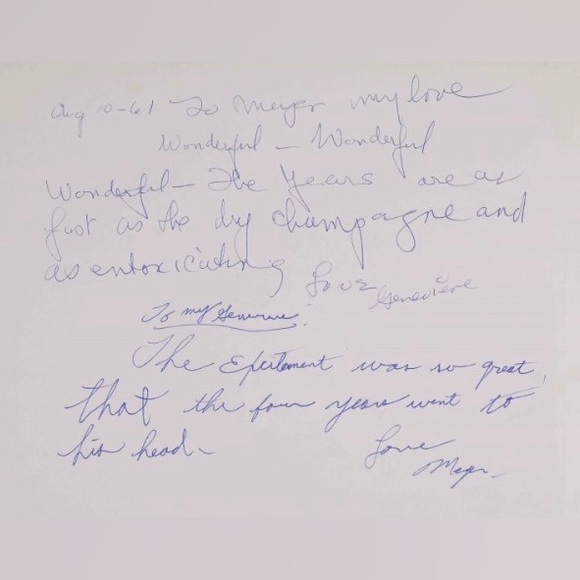 Aug 10-61 To Meyer my love
Wonderful - Wonderful
Wonderful - The Years are as
fast as the dry champagne and
as entoxicating
Love Genevieve
To my Genevieve!
The Excitement was so great,
that the four years went to
his head -
Love
Meyer -